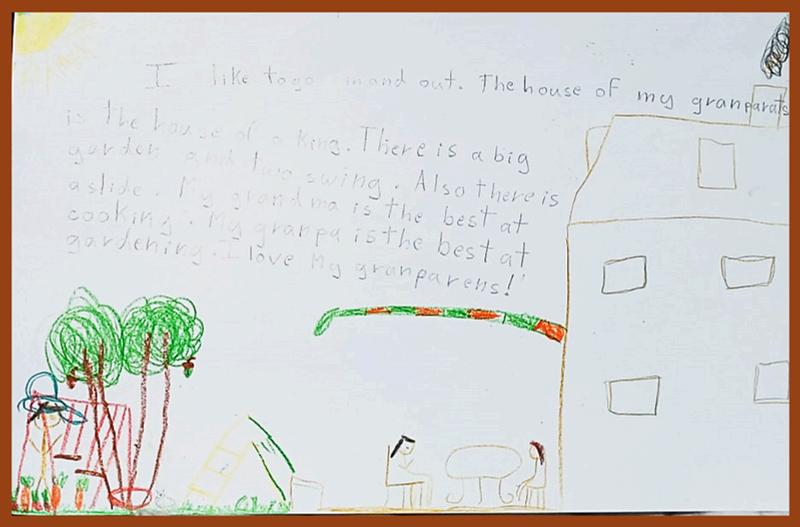 I like togo in and out. The house of my granparats
is the house of a king. There is a big
garden and two swing. Also there is
aslide. My grandma is the best at
cooking. My granpa is the best at
gardening. I love My granparens!